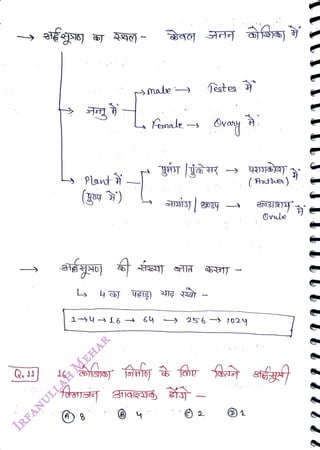 → अर्द्धसूत्रण का स्थल - केवल जनन कोशिका में
→ जन्तु में → male → Testes में
→ Female → Ovary में
→ Plant में (पुष्प में) → पुमंग / पुंकेसर → परागकोश (Anther) में
→ जायांग / → Ovule में
→ अर्द्धसूत्रण की संख्या ज्ञात करना -
↳ 4 का पहाड़ा याद रखो -
1 → 4 → 16 → 64 → 256 → 1024
Q.11 16 कोशिका निर्माण के लिए कितने अर्द्धसूत्री
विभाजन आवश्यक होंगे -
Ⓐ 8 Ⓑ 4 Ⓒ 2 Ⓓ 1
IRFANULLAH MEHAR